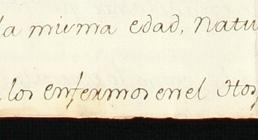 la misma edad, natu
los enfermos en el Hos